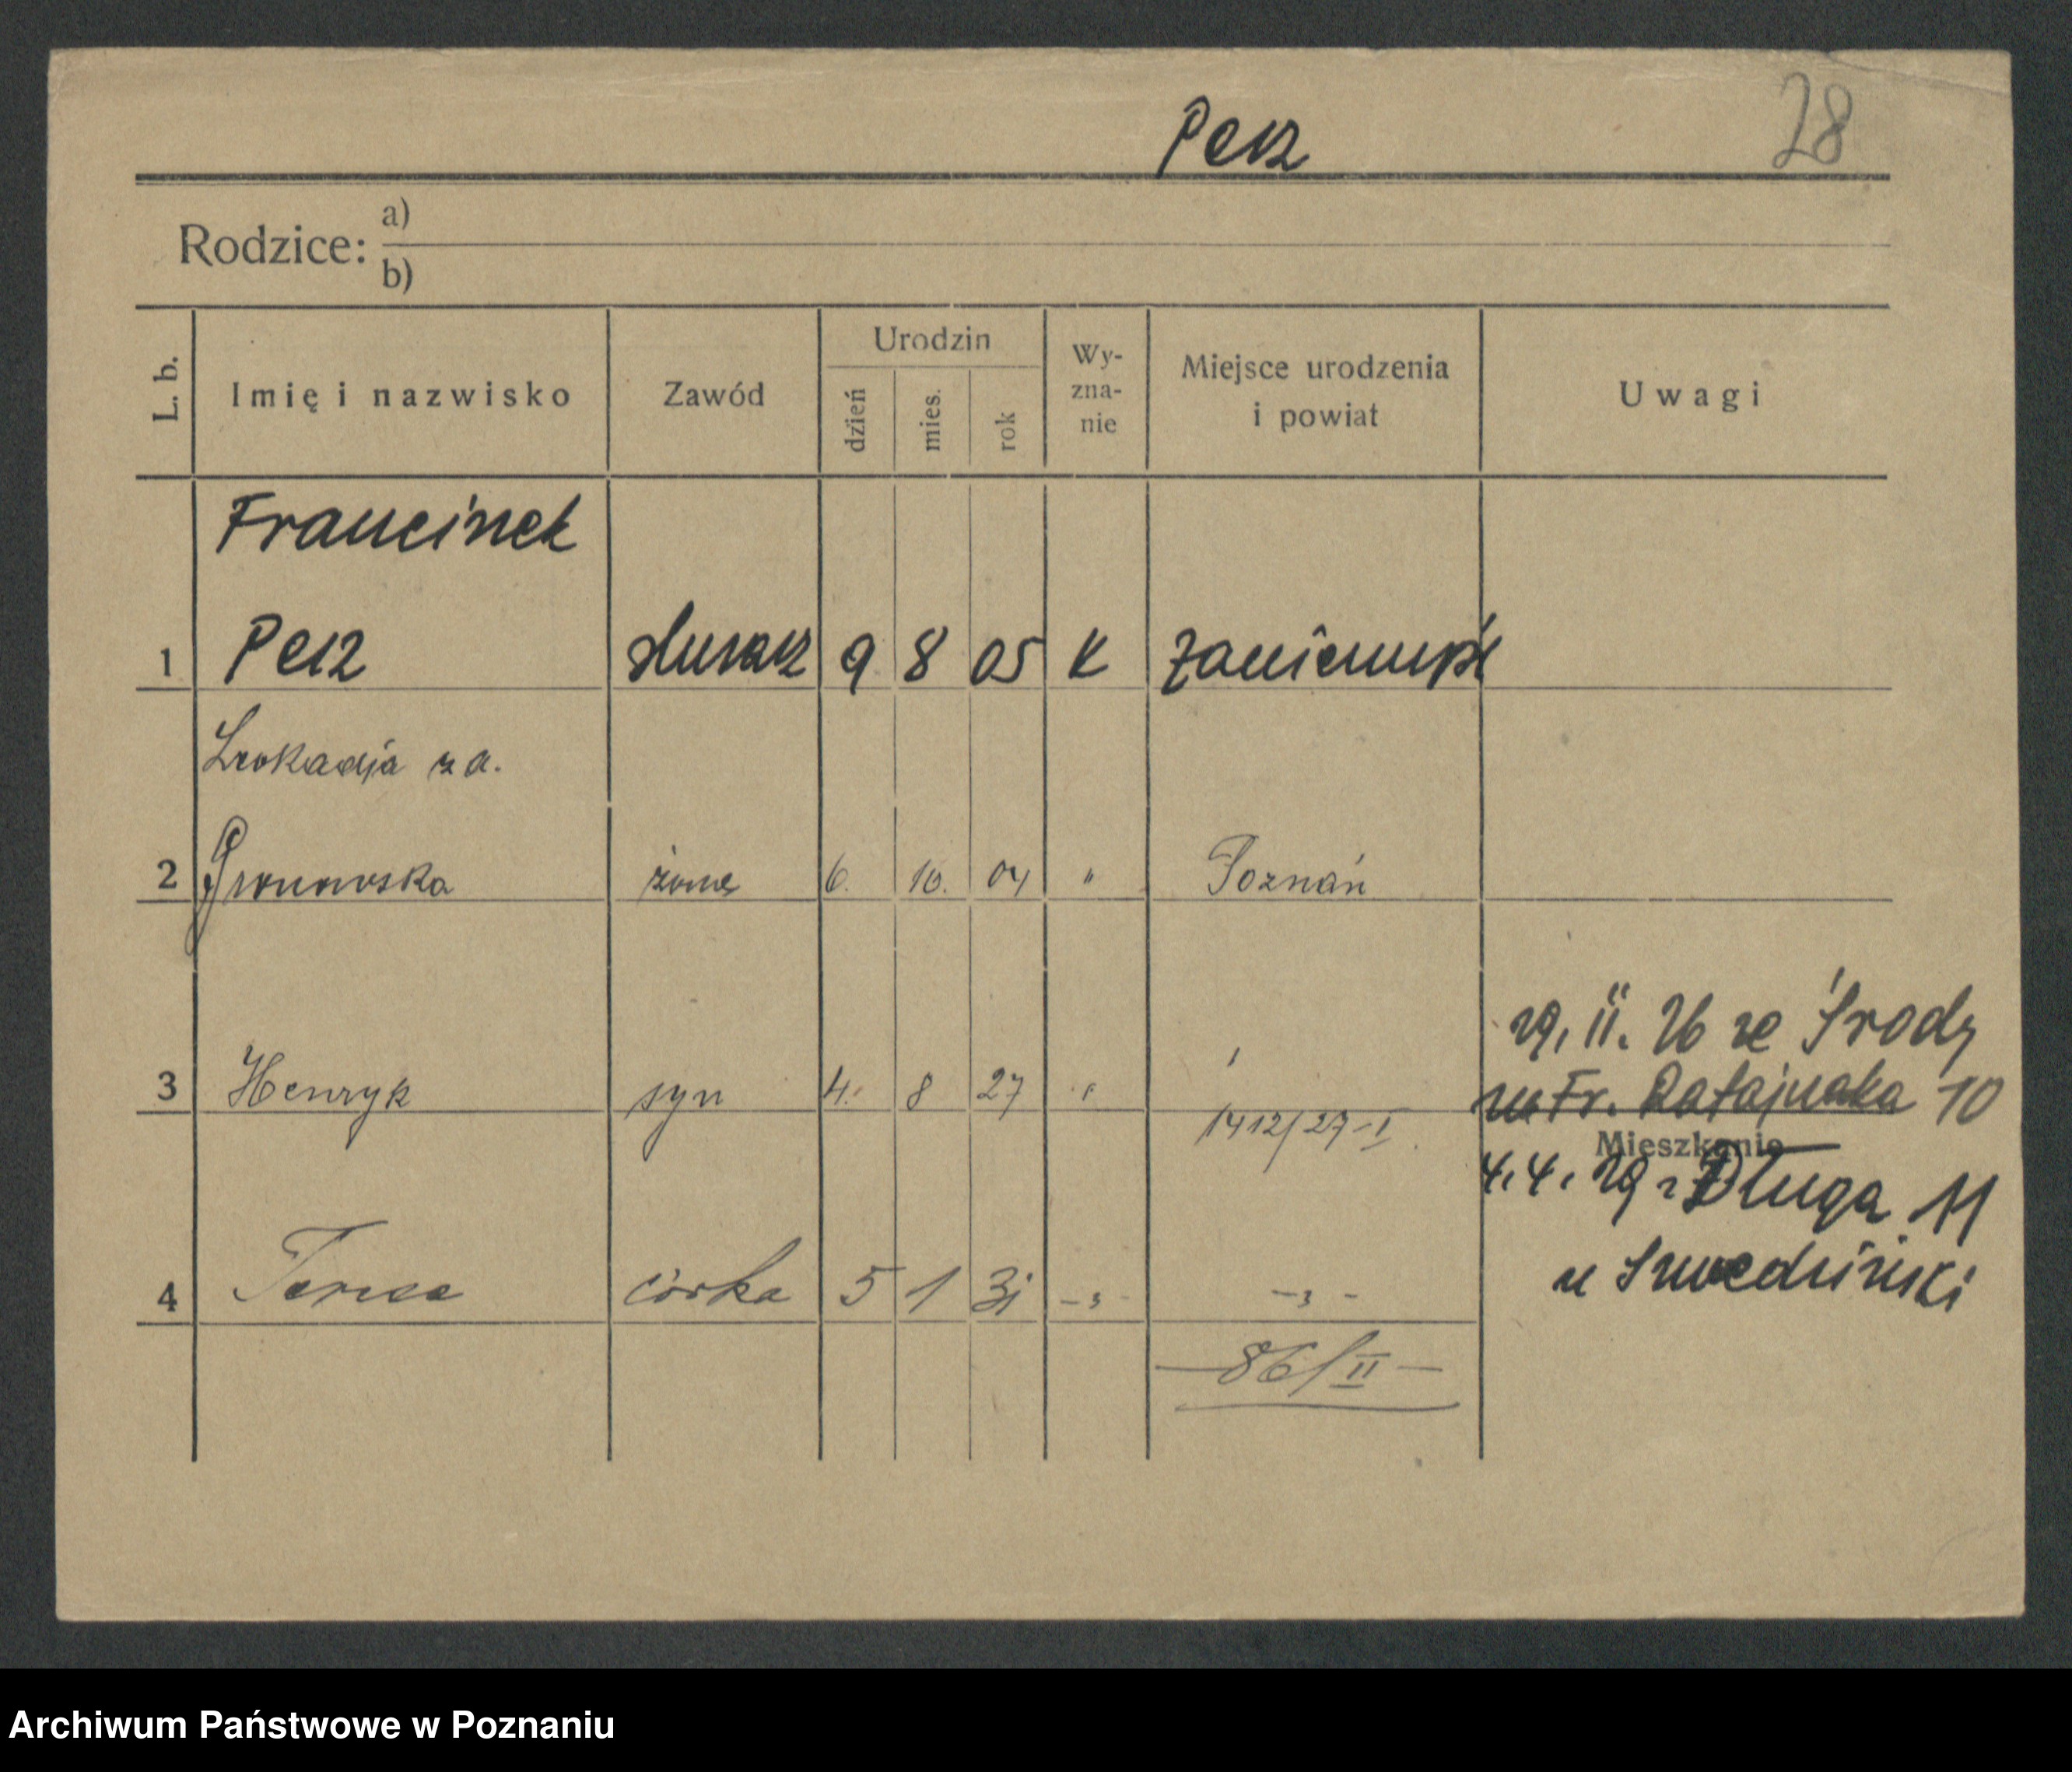 Pesz
28
Rodzice: a)
b)
L. b.
Imię i nazwisko
Zawód
Urodzin
dzień
mies.
rok
Wy-
zna-
nie
Miejsce urodzenia
i powiat
Uwagi
Franciszek
1 Pesz ślusarz 9 8 05 K Zaniemyśl
Leokadja z d.
2 Gronowska żona 6. 10. 04 " Poznań
29. II. 26 ze Środy
3 Henryk syn 4. 8 27 "
Fr. Ratajczaka 10
1412/27-I
Mieszkanie
4.4.29 Długa 11
u
4 Teresa córka 5 1 31 -„- -„-
-86/II-
Archiwum Państwowe w Poznaniu